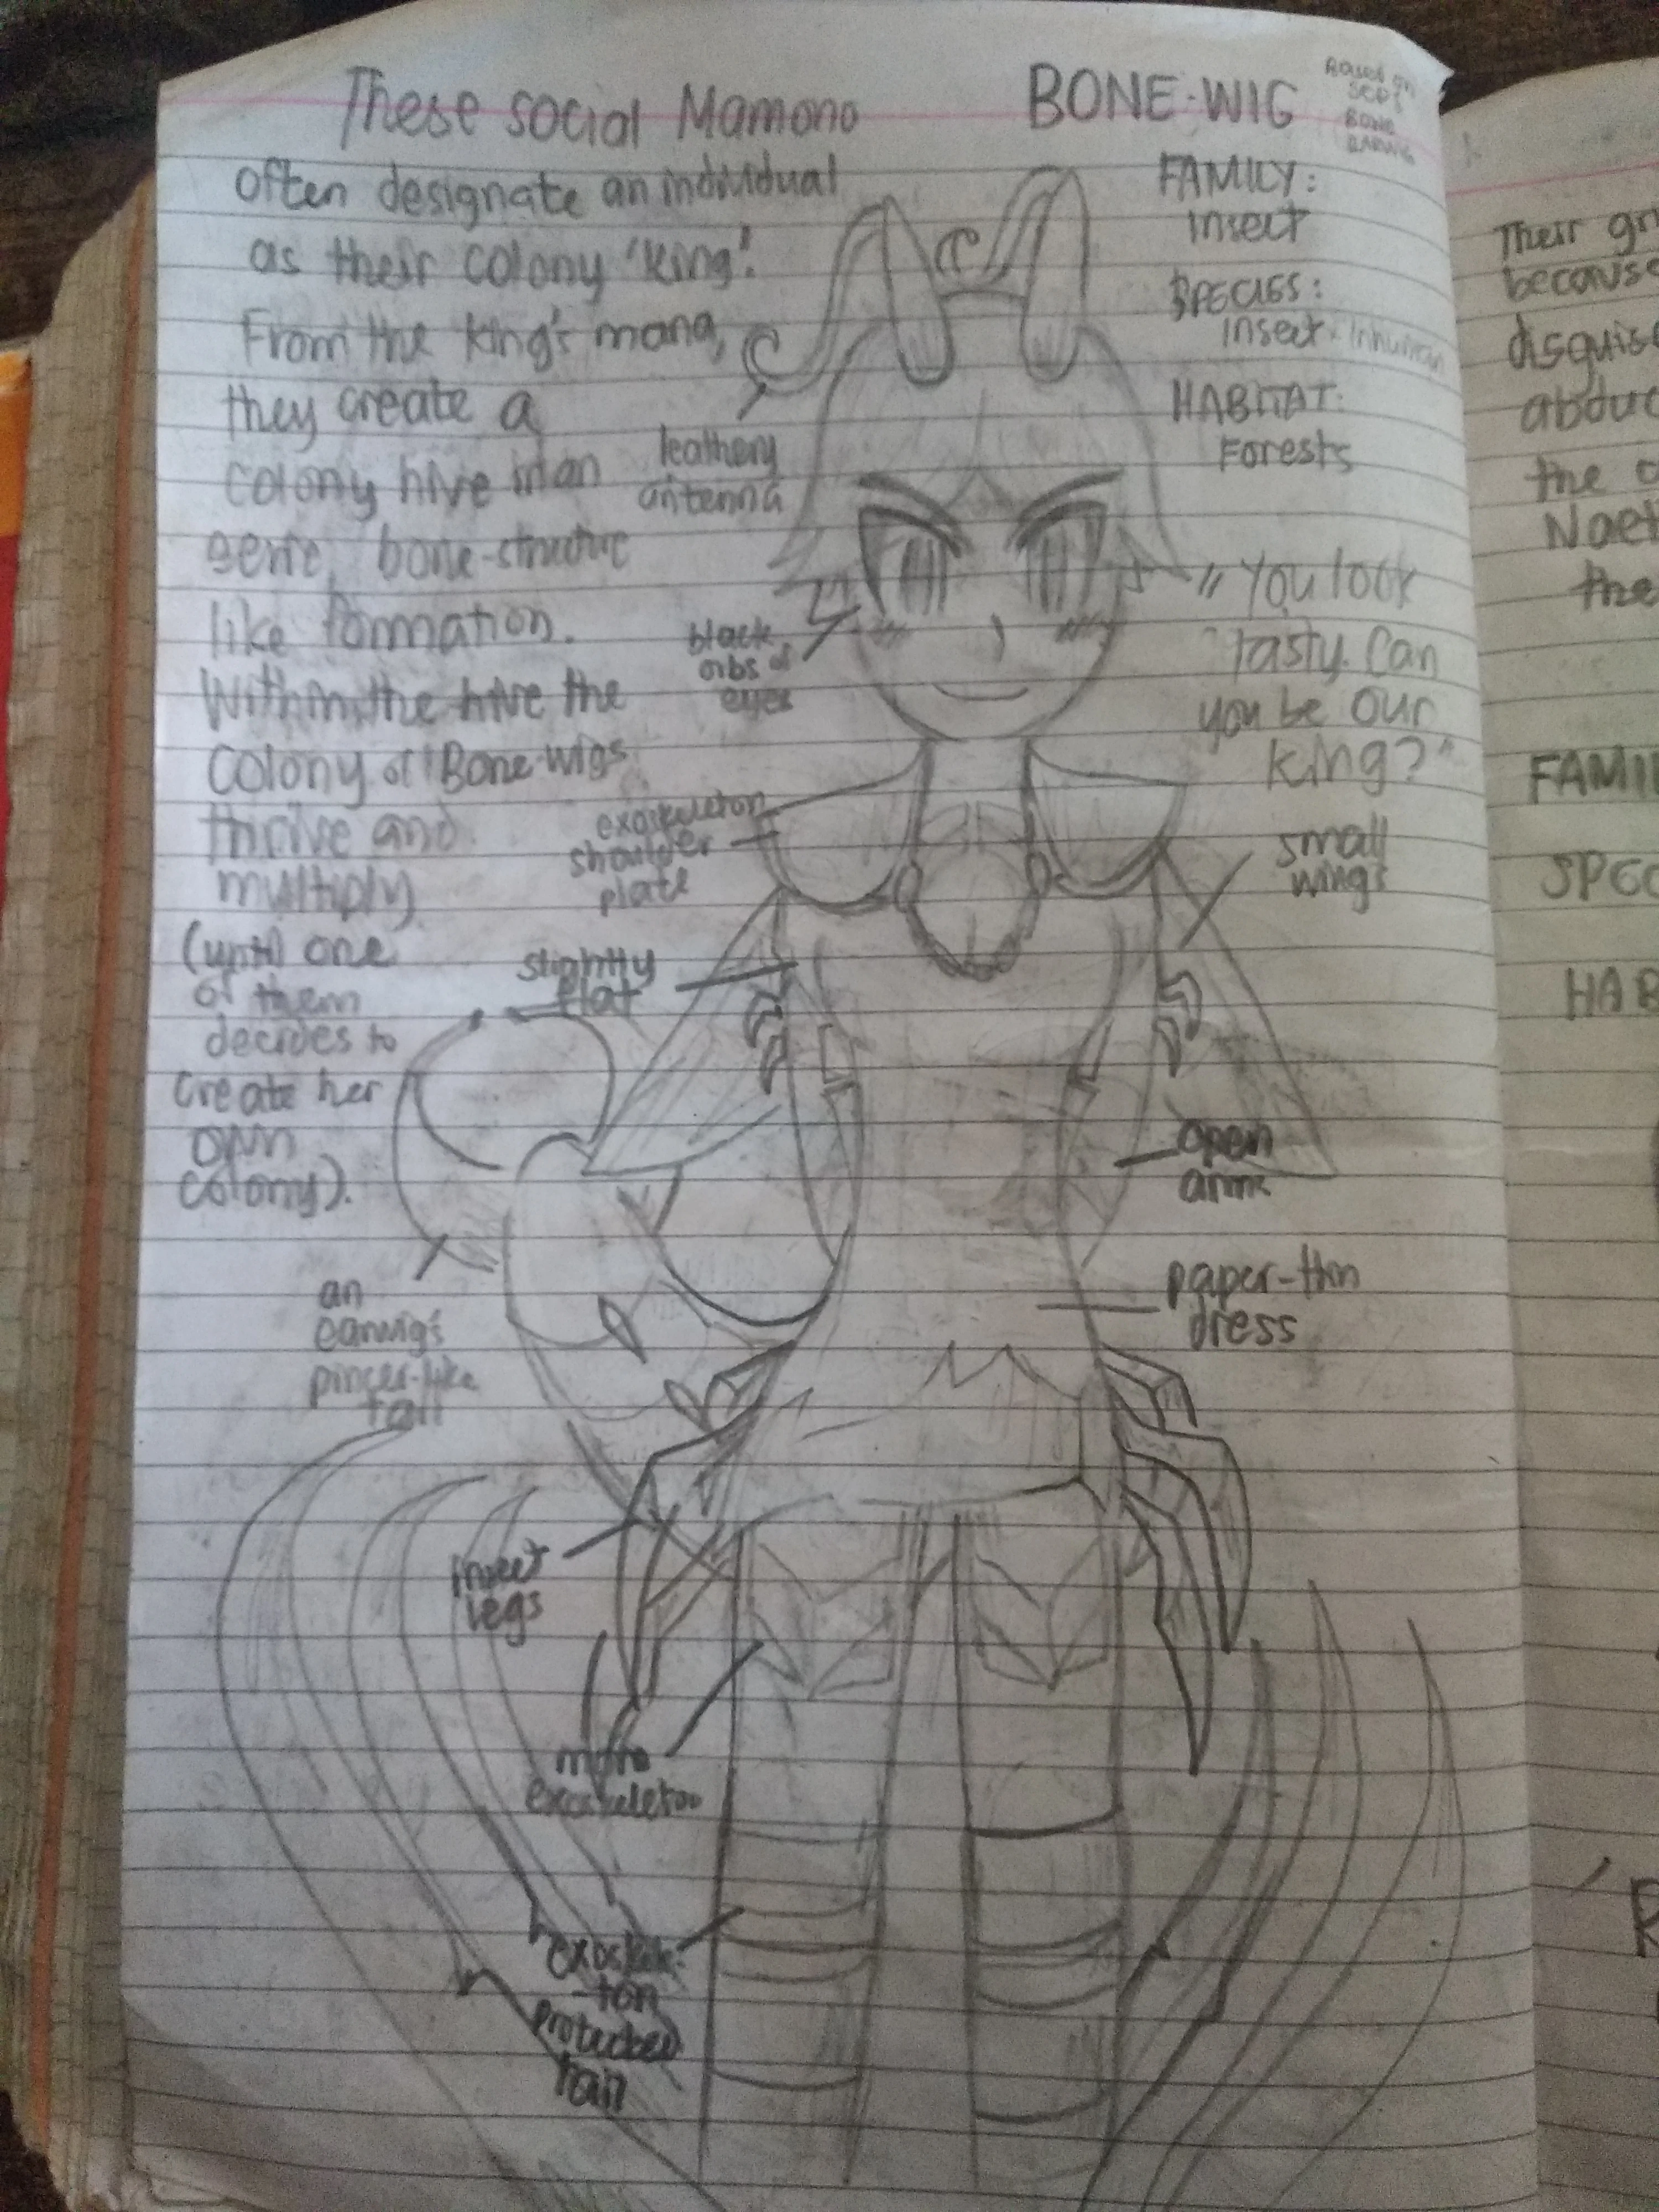 These social Mamono
often designate an individual
as their colony 'king'.
From the king's mana,
they create a
colony hive in an
eerie, bone-structure
like formation.
Within the hive the
colony of Bone-wigs
thrive and
multiply
(until one
of them
decides to
create her
own
colony).
BONE-WIG
Based on
SCP's
BONE
EARWIG
FAMILY:
Insect
SPECIES:
Insect - Inhuman
HABITAT:
Forests
"You look
tasty. Can
you be our
king?"
leathery
antenna
black
orbs of
eyes
exoskeleton
shoulder
plate
small
wings
slightly
flat
open
arms
an
earwig's
pincer-like
tail
paper-thin
dress
insect
legs
more
exoskeleton
exoskele-
-ton
protected
hair
Their
because
disguis
abduc
the
Naet
the
FAMI
SPEC
HAB